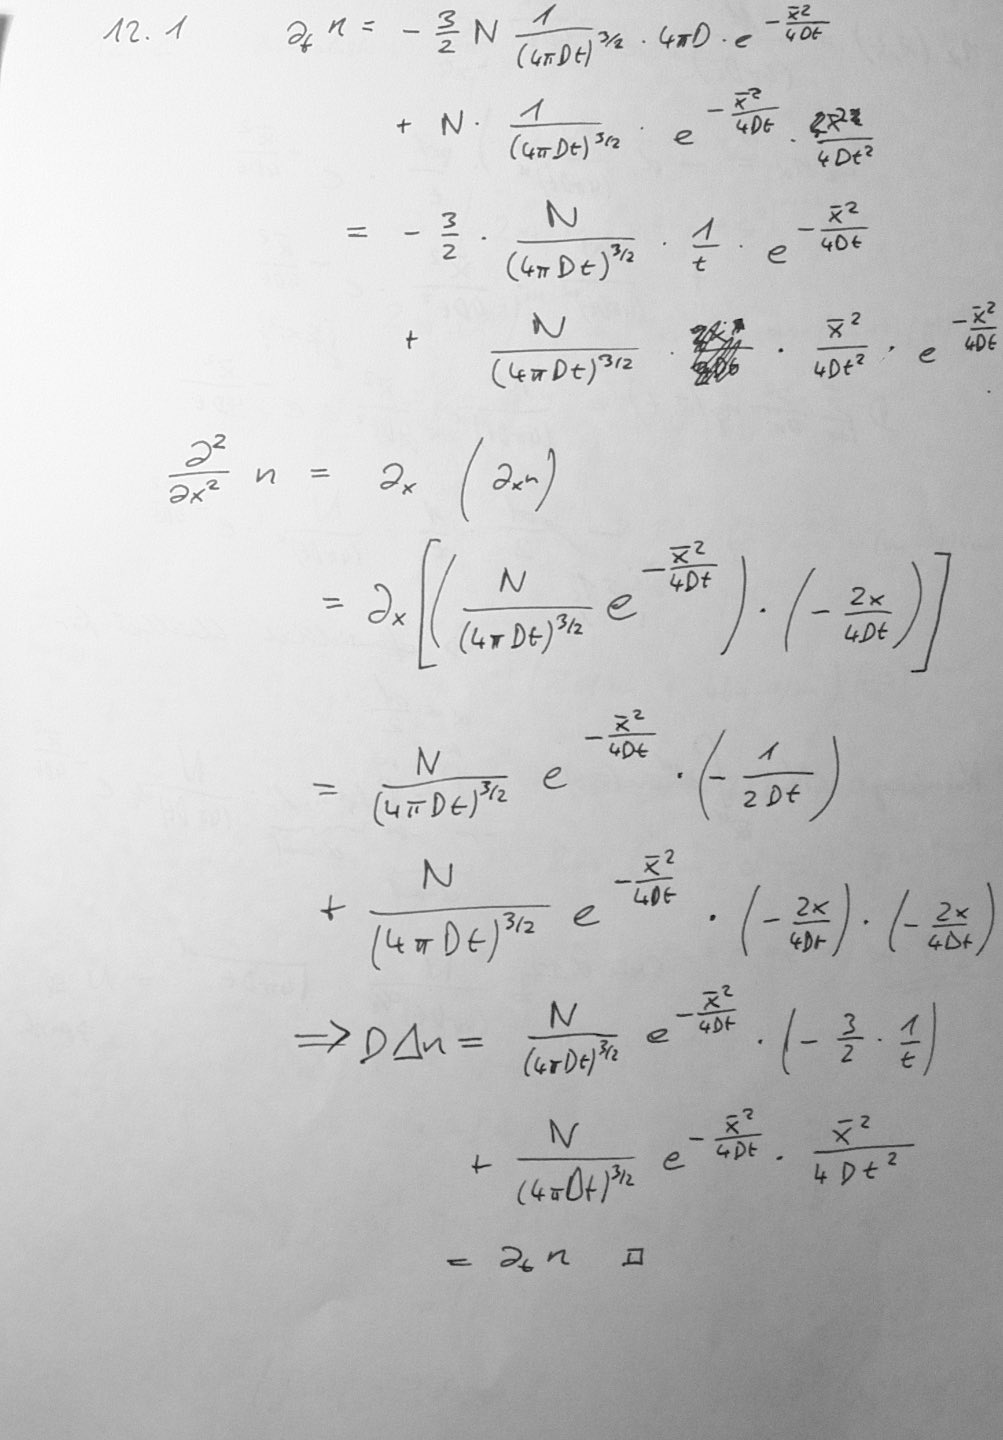 12.1 ∂ₜ n = - 3/2 N 1/(4πDt)^3/2 · 4πD · e^(-x̄²/4Dt)
+ N · 1/(4πDt)^3/2 · e^(-x̄²/4Dt) · x̄²/4Dt²
= - 3/2 · N/(4πDt)^3/2 · 1/t · e^(-x̄²/4Dt)
+ N/(4πDt)^3/2 · · x̄²/4Dt² · e^(-x̄²/4Dt)
∂²/∂x² n = ∂ₓ (∂ₓn)
= ∂ₓ[(N/(4πDt)^3/2 e^(-x̄²/4Dt)) · (- 2x/4Dt)]
= N/(4πDt)^3/2 e^(-x̄²/4Dt) · (- 1/2Dt)
+ N/(4πDt)^3/2 e^(-x̄²/4Dt) · (- 2x/4Dt) · (- 2x/4Dt)
⇒ DΔn = N/(4πDt)^3/2 e^(-x̄²/4Dt) · (- 3/2 · 1/t)
+ N/(4πDt)^3/2 e^(-x̄²/4Dt) · x̄²/4Dt²
= ∂ₜ n □